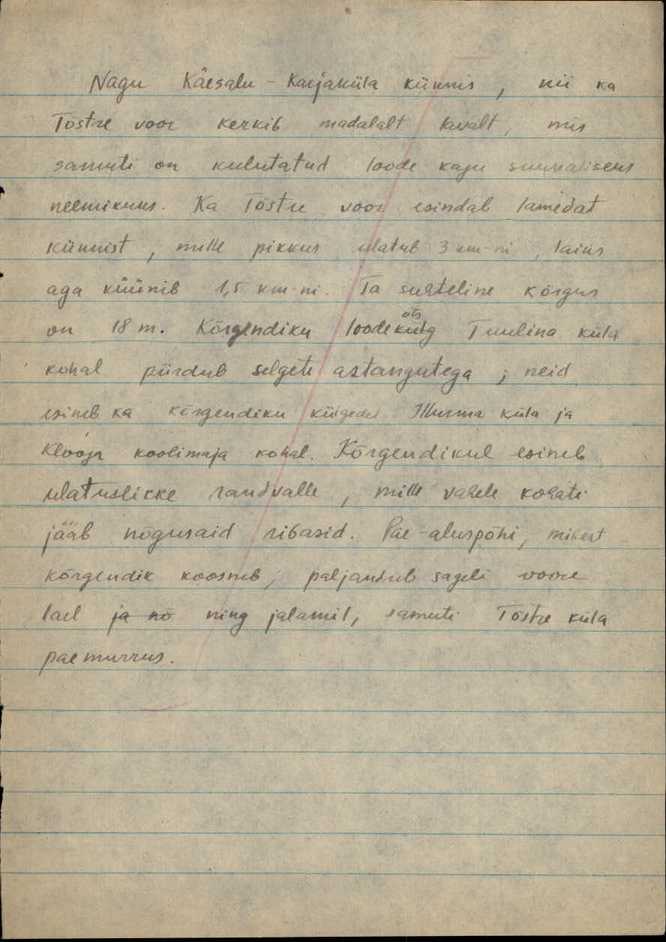 Nagu Käesalu - Karjaküla künnis, nii ka
Tõstre voor kerkib madalalt lavalt, mis
samuti on kulutatud loode kagu suunaliseks
neemikuus. Ka Tõstre voor esindab lamedat
künnist, mille pikkus ulatub 3 km-ni, laius
aga küünib 1,5 km-ni. Ta suhteline kõrgus
on 18 m. Kõrgendiku loode ots Tuulina küla
kohal piirdub selgete astangutega; neid
esineb ka kõrgendiku külgedel küla ja
Klooga koolimaja kohal. Kõrgendikul esineb
ulatuslikke randvalle, mille vahele kohati
jääb nõgusaid ribasid. Pae-aluspõhi, millest
kõrgendik koosneb, paljandub sageli voore
lael ja nõ ning jalamil, samuti Tõstre küla
paemurrus.